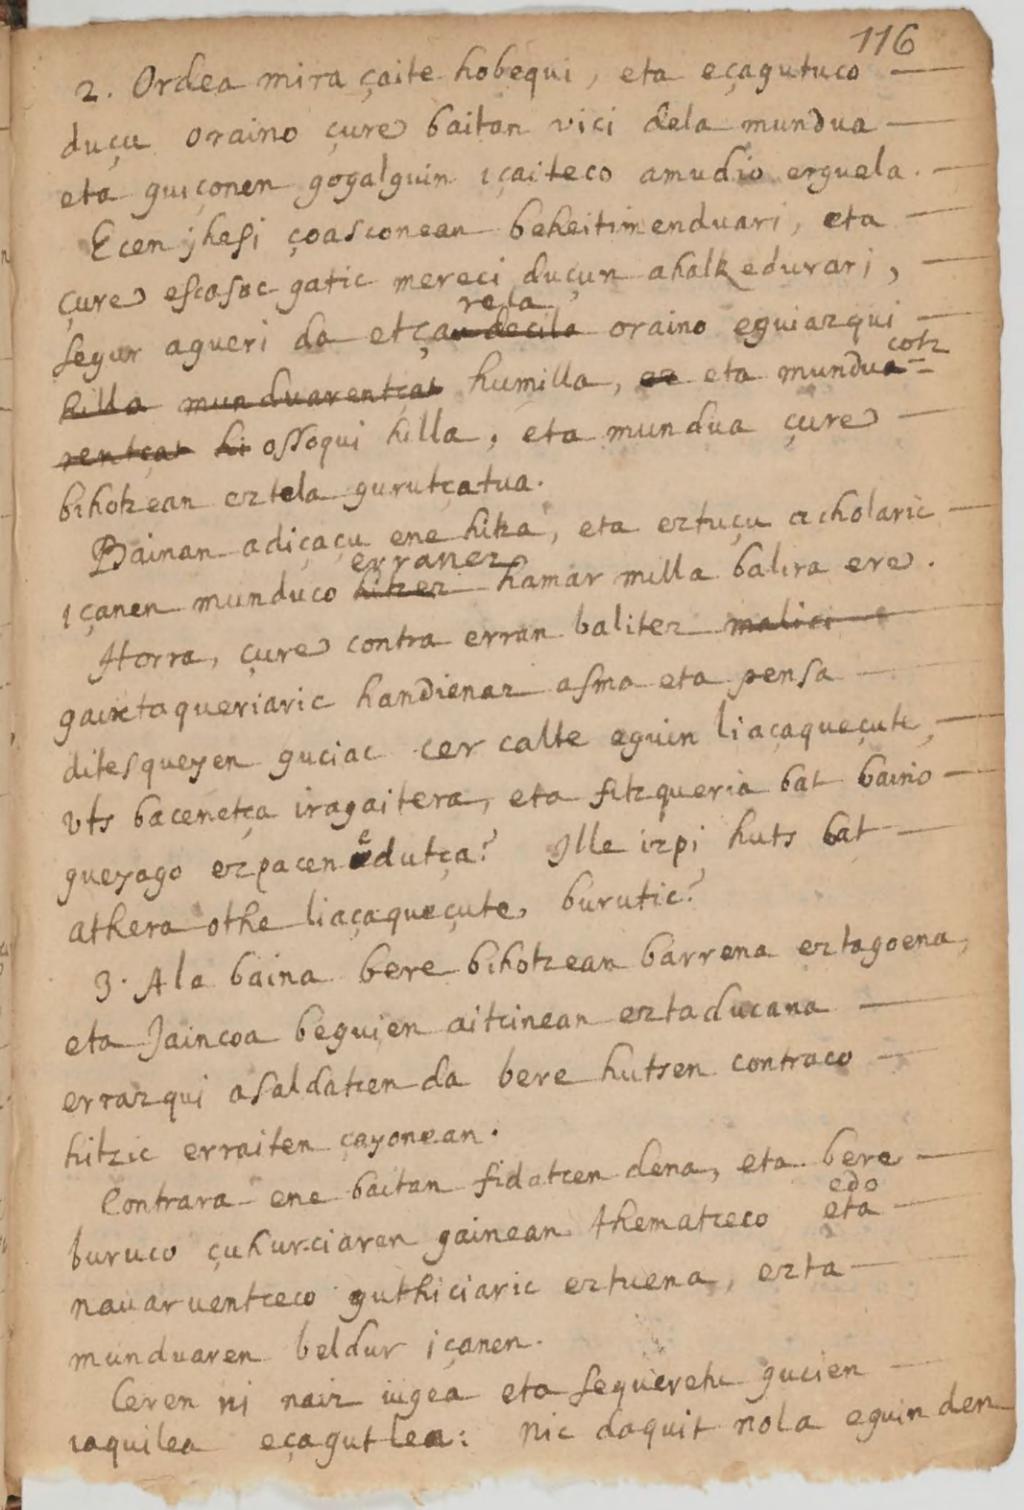 116
2. Ordea mira çaite hobequi, eta eçagutuco
duçu oraino çure baitan vici dela mundua
eta guiçonen gogalguin içaiteco amudio erguela.
Ecen jhesi çoasconean beheitimenduari, eta
çure escasoc gatic mereci duçun ahalkedurari,
rela
segur agueri da etçaudecila oraino eguiazqui
cotz
hilla munduarentçat humilla, ez eta mundua
rentçat hi ossoqui hilla, eta mundua çure
bihotzean eztela gurutçatua.
Bainan adiçaçu ene hitza, eta eztuçu acholaric
erranez
içanen munduco hitzez hamar milla balira ere.
Horra, çure contra erran balitez malici
gaixtaqueriaric handienaz asma eta pensa
ditesqueyen guciac cer calte eguin liaçaqueçute,
vts bacenetça iragaitera, eta fitzqueria bat baino
gueyago ezpacenedutça? Ille izpi huts bat
athera othe liaçaqueçute, burutic?
3. Ala baina bere bihotzean barrena eztagoena,
eta Jaincoa beguien aitcinean eztaducana
errazqui asaldatcen da bere hutsen contraco
hitzic erraiten çayonean.
Contrara ene baitan fidatcen dena, eta bere
edo
buruco çuhurciaren gainean thematceco eta
nauaruentceco guthiciaric eztuena, ezta
munduaren beldur içanen.
Ceren ni naiz iugea eta segueretu gucien
iaquilea eçagutlea: nic daquit nola eguin den